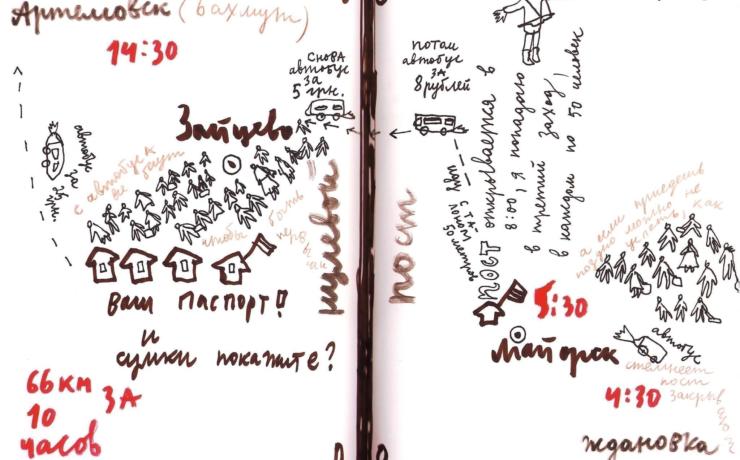 Артемовск (Бахмут)
14:30
снова
автобус
за
5 грн.
потом
автобус
за
8 рублей
Зайцево
автобус за
с автобуса к
бегут
чтобы быть
нулевой
пост
Ваш паспорт?
и
сумки покажите?
66 км
за
10
часов
пост открывается в
8:00, я попадаю
в третий заход,
в каждом по 50 человек
а если приедешь
поздно можно не
как
5:30
Майорск
автобус
стемнеет
пост
закрыв
4:30
Ждановка